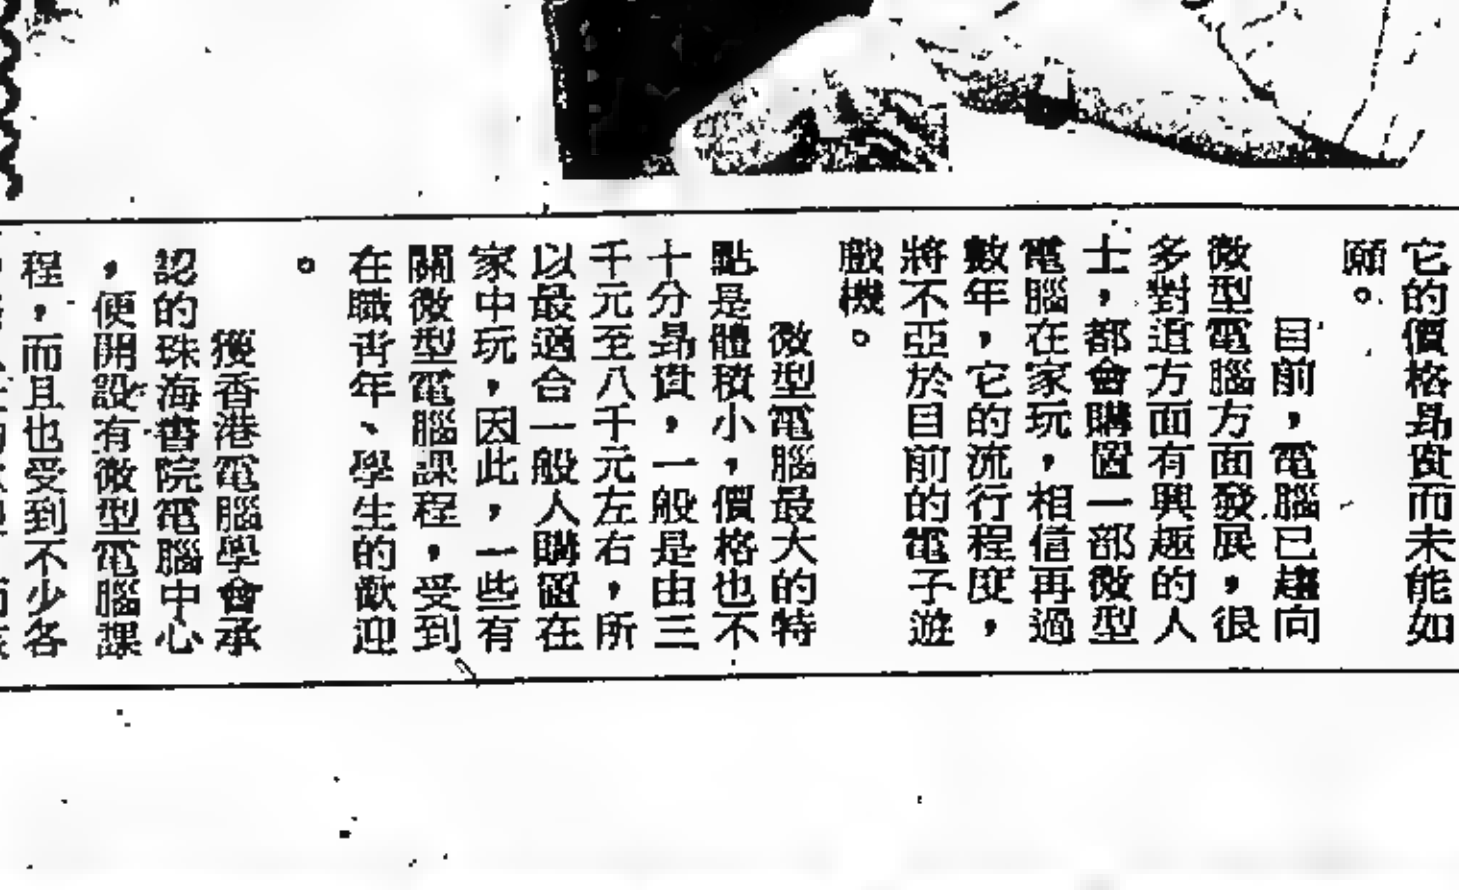 它的價格昂貴而未能如
願。
目前，電腦已趨向
微型電腦方面發展，很
多對這方面有興趣的人
士，都會購置一部微型
電腦在家玩，相信再過
數年，它的流行程度，
將不亞於目前的電子遊
戲機。
微型電腦最大的特
點是體積小，價格也不
十分昂貴，一般是由三
千元至八千元左右，所
以最適合一般人購置在
家中玩，因此，一些有
關微型電腦課程，受到
在職青年、學生的歡迎
。
獲香港電腦學會承
認的珠海書院電腦中心
，便開設有微型電腦課
程，而且也受到不少各